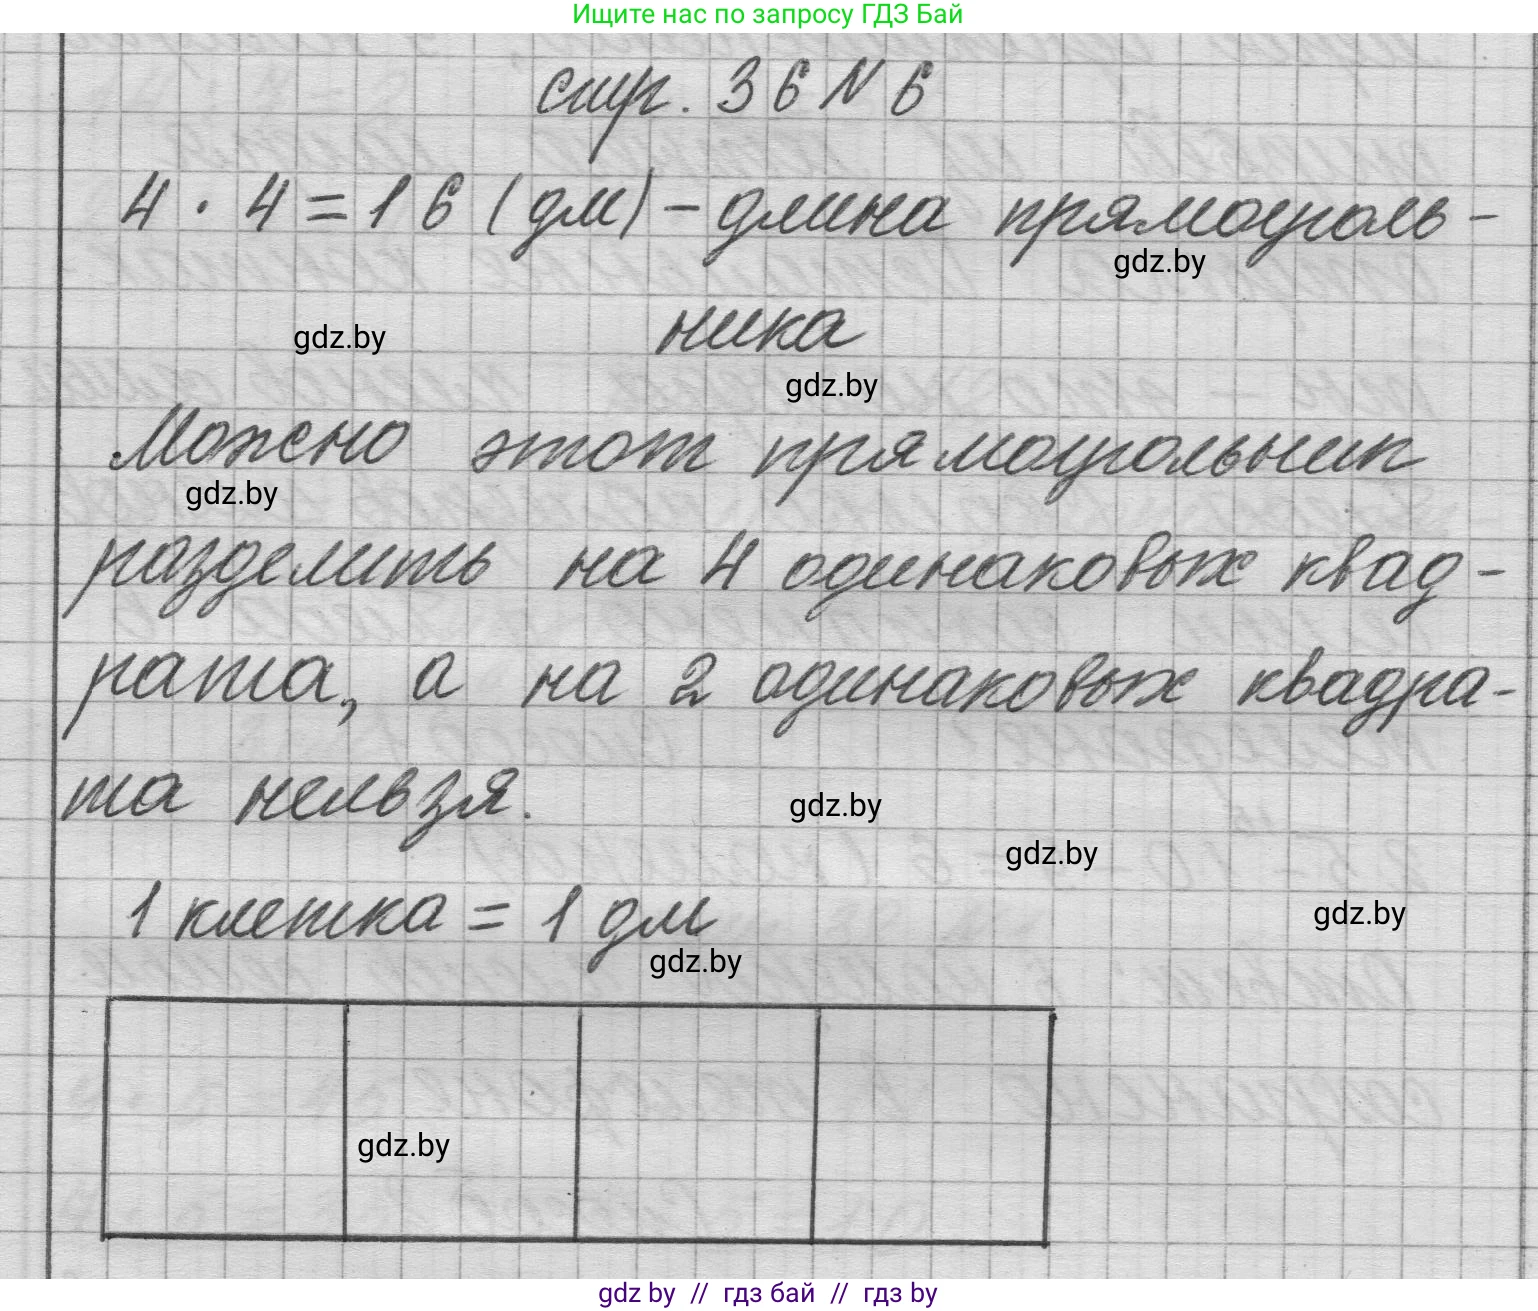 Ищите нас по запросу ГДЗ Бай
стр. 36 № 6
4 · 4 = 16 (дм) - длина прямоуголь-
gdz.by
ника
gdz.by
gdz.by
Можно этот прямоугольник
gdz.by
разделить на 4 одинаковых квад-
рата, а на 2 одинаковых квадра-
та нельзя.
gdz.by
gdz.by
1 клетка = 1 дм
gdz.by
gdz.by
gdz.by
gdz by // гдз бай // гдз by